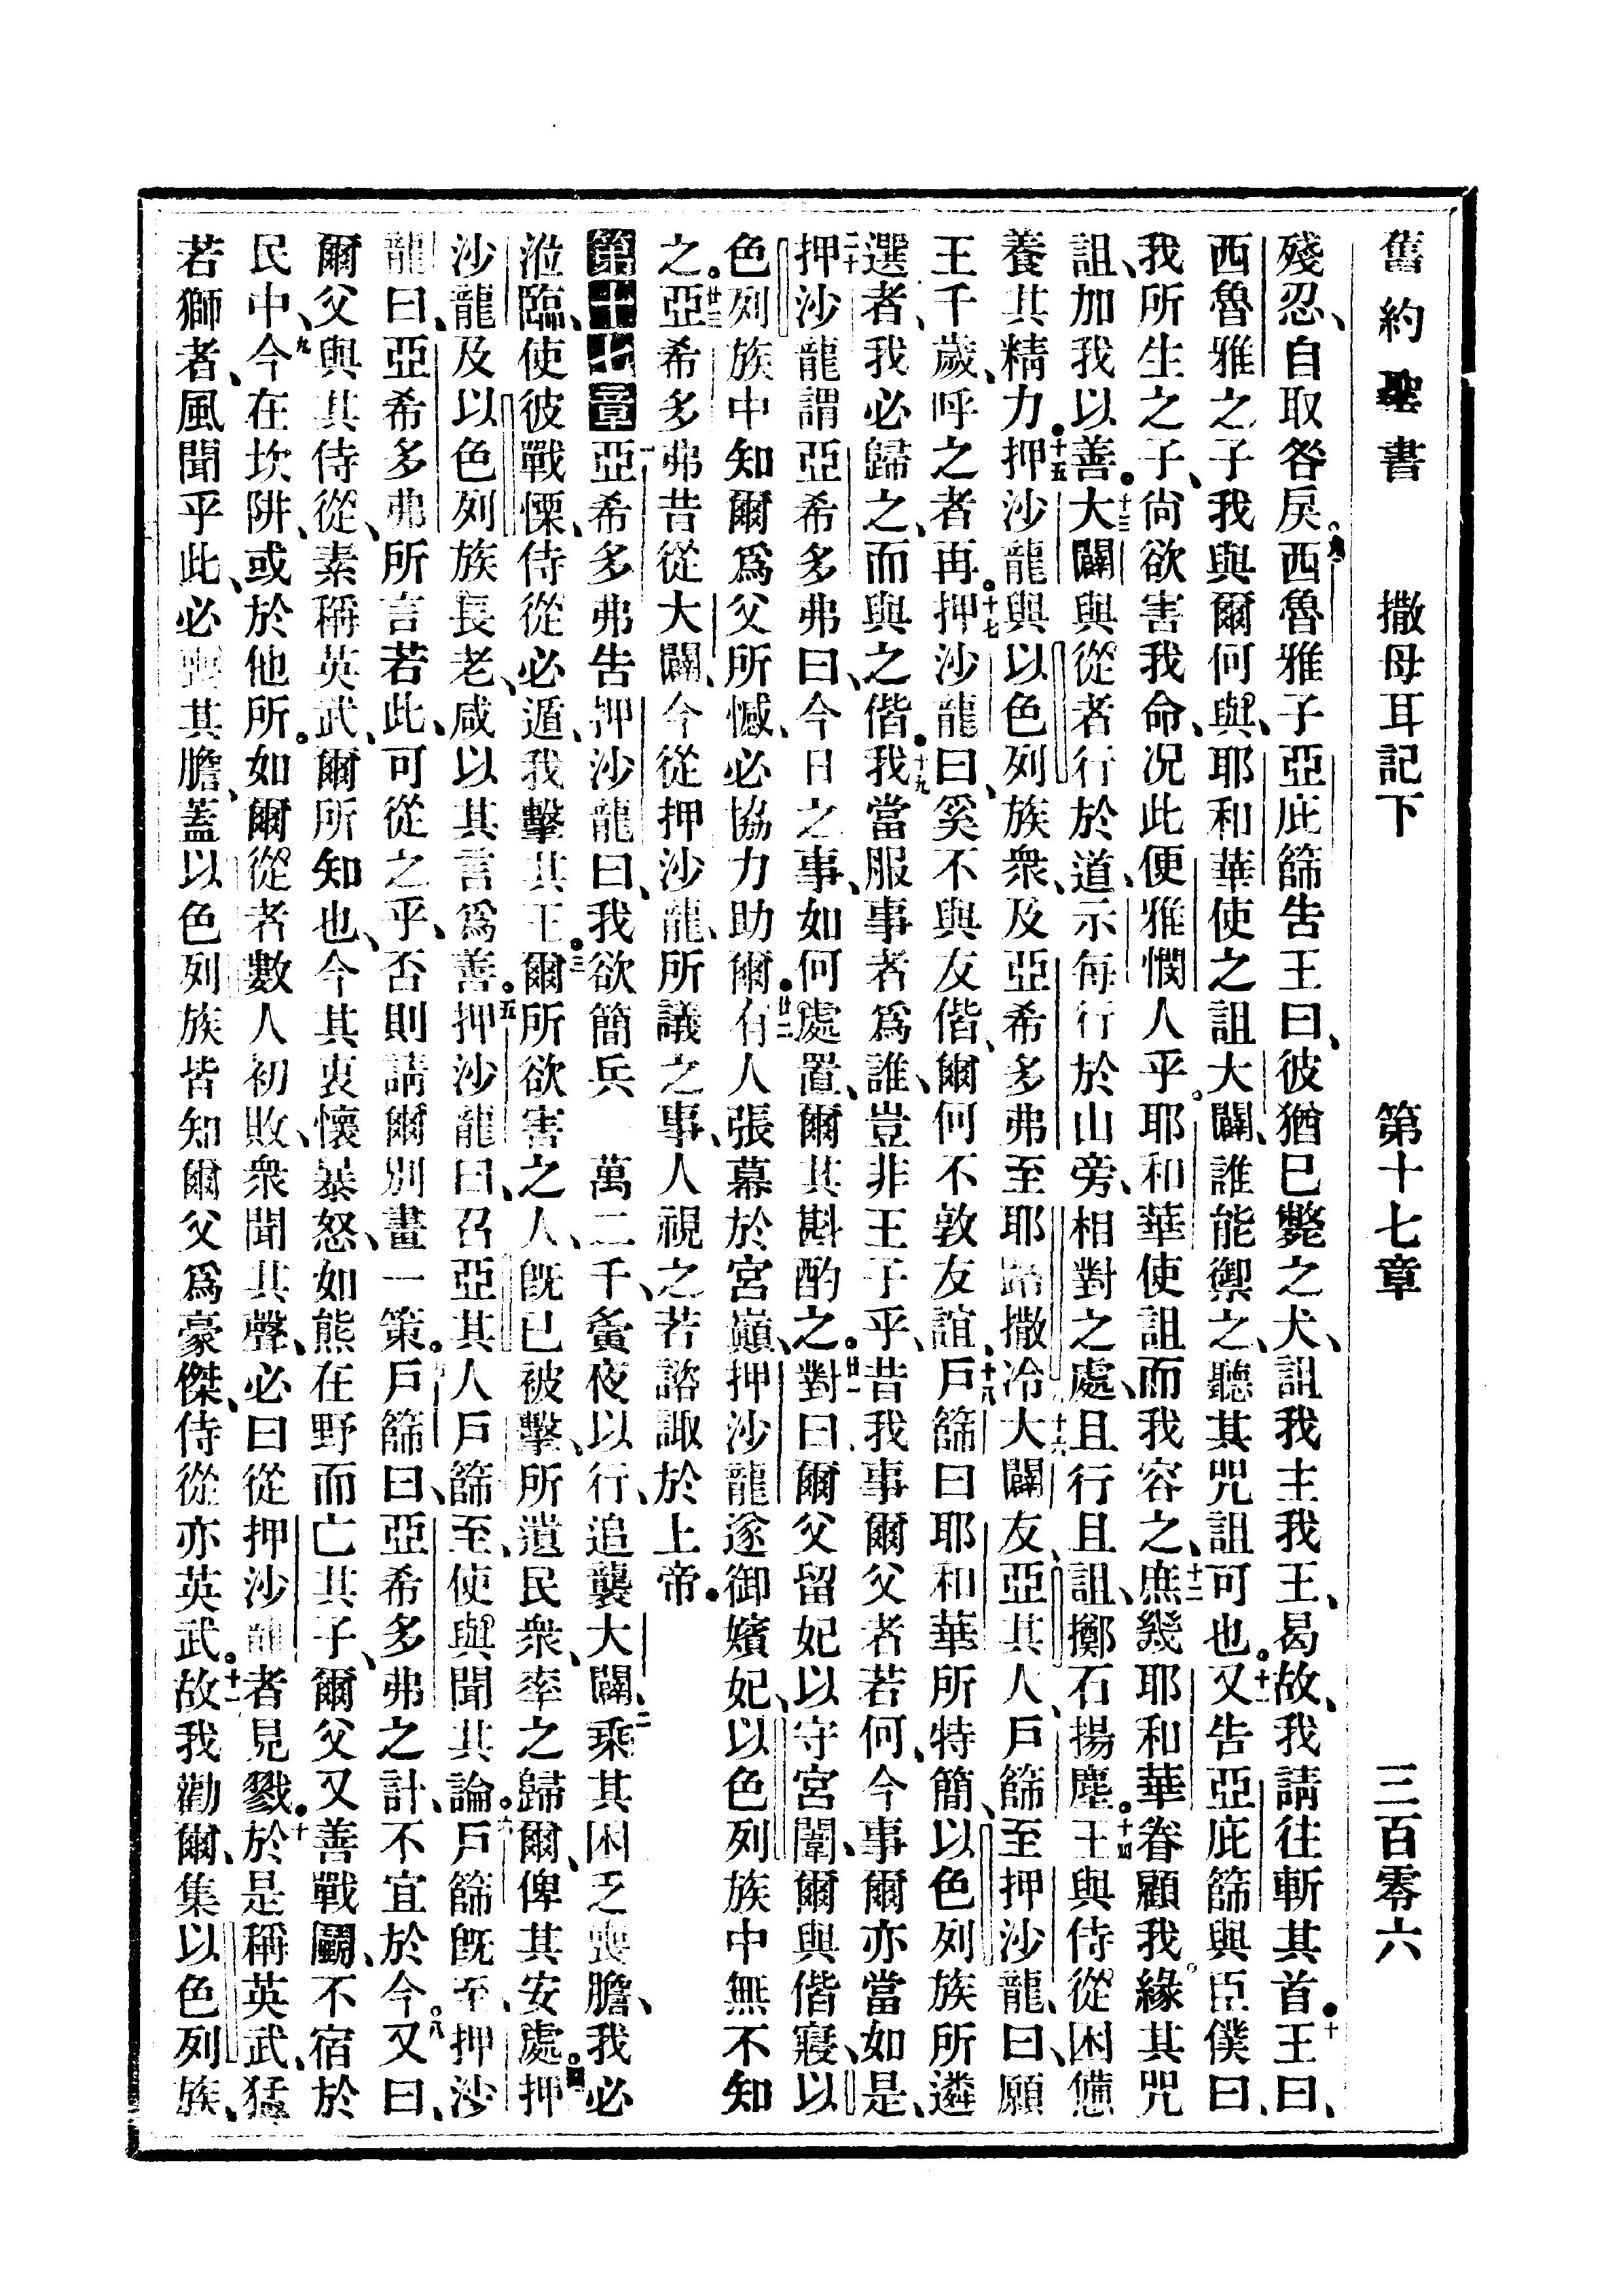 舊約聖書 撒母耳記下 第十七章 三百零六
殘忍、自取咎戾。九西魯雅子亞庇篩告王曰、彼猶已斃之犬、詛我主我王、曷故、我請往斬其首。十王曰、
西魯雅之子、我與爾何與、耶和華使之詛大闢、誰能禦之、聽其咒詛可也。十一又告亞庇篩與臣僕曰、
我所生之子、尙欲害我命、况此便雅憫人乎。耶和華使詛而我容之、十二庶幾耶和華眷顧我、緣其咒
詛、加我以善。十三大闢與從者行於道、示每行於山旁、相對之處、且行且詛、擲石揚塵。十四王與侍從困憊
養其精力。十五押沙龍與以色列族衆、及亞希多弗至耶路撒冷、十六大闢友、亞其人、戶篩至押沙龍、曰、願
王千歲、呼之者再。十七押沙龍曰、奚不與友偕、爾何不敦友誼、十八戶篩曰耶和華所特簡、以色列族所遴
選者、我必歸之、而與之偕。十九我當服事者爲誰、豈非王子乎、昔我事爾父者若何、今事爾亦當如是、
二十押沙龍謂亞希多弗曰、今日之事、如何處置、爾其斟酌之。廿一對曰爾父留妃以守宮闈、爾與偕寢、以
色列族中知爾爲父所憾、必協力助爾。廿二有人張幕於宮巔、押沙龍遂御嬪妃、以色列族中無不知
之。廿三亞希多弗昔從大闢、今從押沙龍、所議之事、人視之若諮諏於上帝。
第十七章 一亞希多弗告押沙龍曰、我欲簡兵一萬二千、夤夜以行、追襲大闢、二乘其困乏喪膽、我必
涖臨、使彼戰慄、侍從必遁、我擊其王。三爾所欲害之人、旣已被擊、所遺民衆、率之歸爾、俾其安處。四押
沙龍及以色列族長老、咸以其言爲善。五押沙龍曰、召亞其人戶篩至、使與聞其論。六戶篩旣至、押沙
龍曰、亞希多弗所言若此、可從之乎、否則請爾別畫一策。七戶篩曰、亞希多弗之計、不宜於今。八又曰、
爾父與其侍從、素稱英武、爾所知也、今其衷懷暴怒、如熊在野而亡其子、爾父又善戰鬭、不宿於
民中、九今在坎阱、或於他所。如爾從者數人初敗、衆聞其聲、必曰從押沙龍者見戮。十於是稱英武、猛
若獅者、風聞乎此、必喪其膽、蓋以色列族皆知爾父爲豪傑、侍從亦英武。十一故我勸爾、集以色列族、